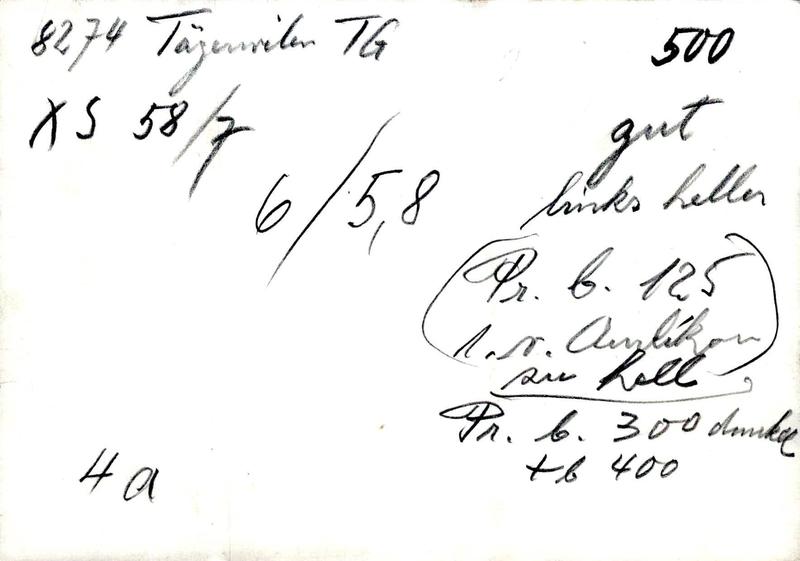 8274 Tägerwilen TG
500
XS 58/7
gut
6/5,8
links heller
(Pr. b. 125
1. v. Amlikon
zu hell)
Pr. b. 300 dunkel
+ b 400
4a